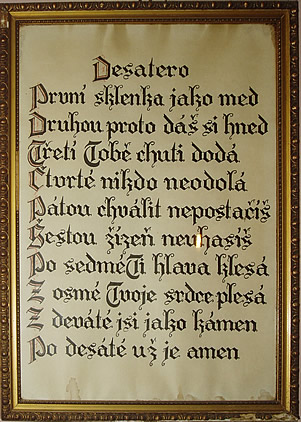 Desatero
První sklenka jako med
Druhou proto dáš si hned
Třetí Tobě chuti dodá
Čtvrté nikdo neodolá
Pátou chválit nepostačíš
Šestou žízeň neuhasíš
Po sedmé Ti hlava klesá
Z osmé Tvoje srdce plesá
Z deváté jsi jako kámen
Po desáté už je amen